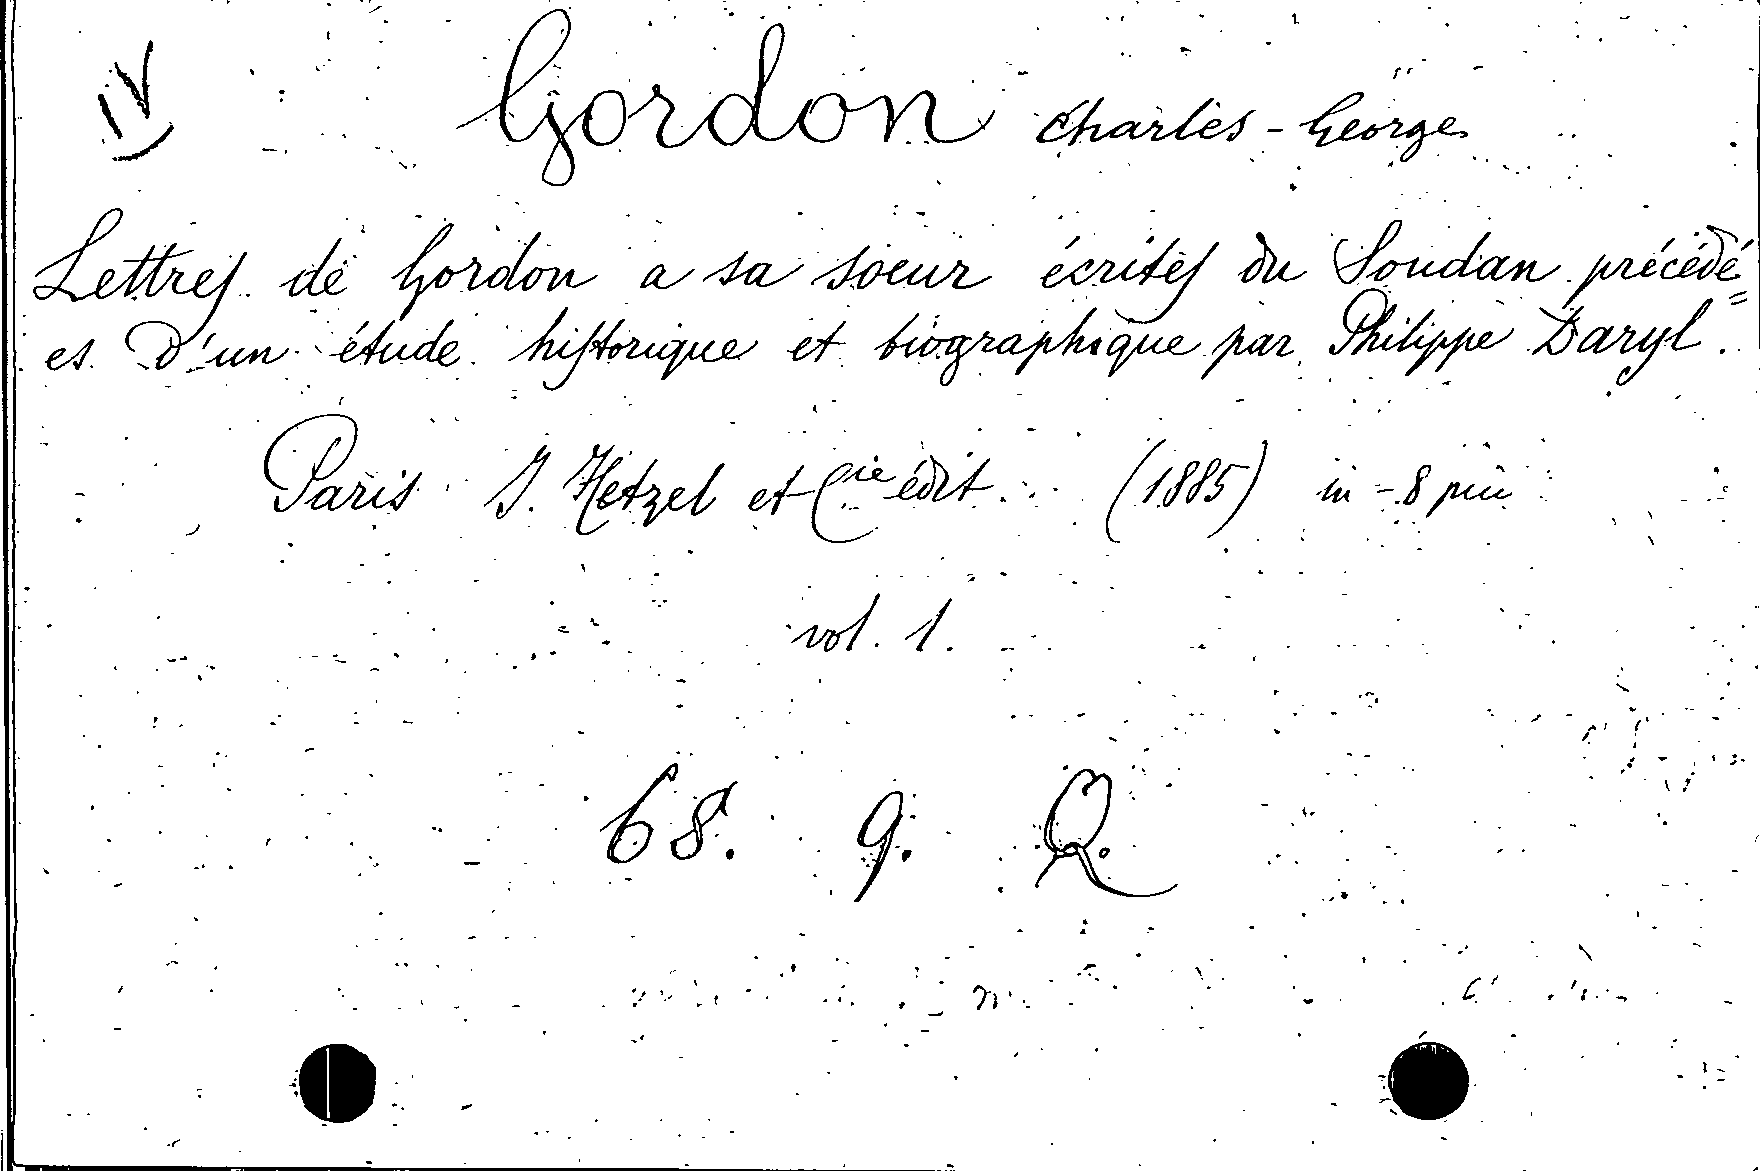 IV
Gordon Charles-George
Lettres de Gordon a sa soeur écrites du Soudan précédé=
es d'un étude historique et biographique par Philippe Daryl.
Paris J. Hetzel et Cie édit. (1885) in-8 piu
vol. 1.
68. 9. Q.